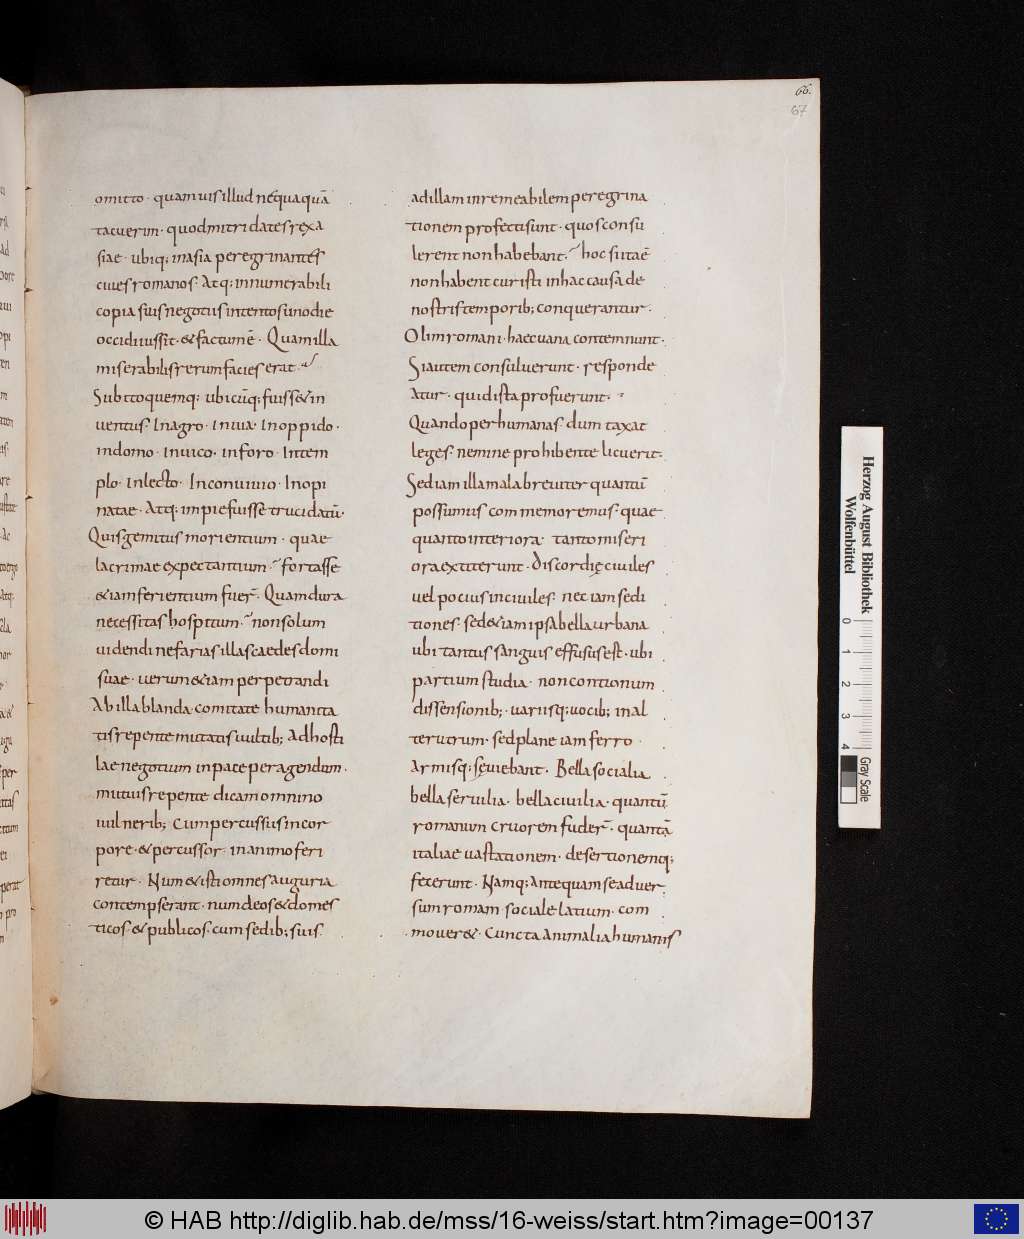 66.
67
omitto · quam uis illud nequaquā
tacuerim · quod mitridates rex a
siae · ubiq; in asia peregrinantes
ciues romanos · Atq; innumerabili
copia suis negotiis intentos uno die
occidi iussit · & factum ē · Quam illa
miserabilis rerum facies erat ·
Subito quemq; ubicūq; fuiss& in
uentus · In agro · In uia · In oppido ·
in domo · In uico · in foro · In tem
plo · In lecto · In conuiuio · Inopi
natae · Atq; impie fuisse trucidatū ·
Quis gemitus morientium · quae
lacrimae expectantium · fortasse
& iam ferientium fuer̄ · Quam dura
necessitas hospitum · non solum
uidendi nefarias illas caedes domi
suae · uerum & iam perpetrandi
Ab illa blanda comitate humanita
tis repente mutatis uultib; Ad hosti
le negotium in pace peragendum ·
mutuis repente dicam omnino
uulnerib; Cum percussus in cor
pore · & percussor in animo feri
retur · Num & isti omnes auguria
contempserant · num deos & domes
ticos · & publicos · cum sedib; suis
ad illam inremeabilem peregrina
tionem profecti sunt · quos consu
lerent non habebant · hoc si ita ē
non habent cur isti in hac causa de
nostris temporib; conquerantur ·
Olim romani · haec uana contemnunt ·
Si autem consuluerunt · responde
Atur · quid ista profuerunt ·
Quando per humanas · dum taxat
leges · nemine prohibente licuerit ·
Sed iam illa mala breuiter quantū
possumus commemoremus · quae
quanto interiora · tanto miseri
ora extiterunt · Discordię ciuiles
uel pocius inciuiles · nec iam sedi
tiones · sed & iam ipsA bella urbana
ubi tantus sanguis effusus est · ubi
partium studia · non contionum
dissensionib; · uariisq; uocib; in al
terutrum · sed plane iam ferro
Armisq; sęuiebant · Bella socialia
bella seruilia · bella ciuilia · quantū
romanum cruorem fuder̄ · quantā
italiae uastationem · desertionemq;
fecerunt · Namq; Antequam se aduer
sum romam sociale latium · com
mouer& · Cuncta Animalia humanis
Herzog August Bibliothek
Wolfenbüttel
0 1 2 3 4
Gray Scale
© HAB http://diglib.hab.de/mss/16-weiss/start.htm?image=00137